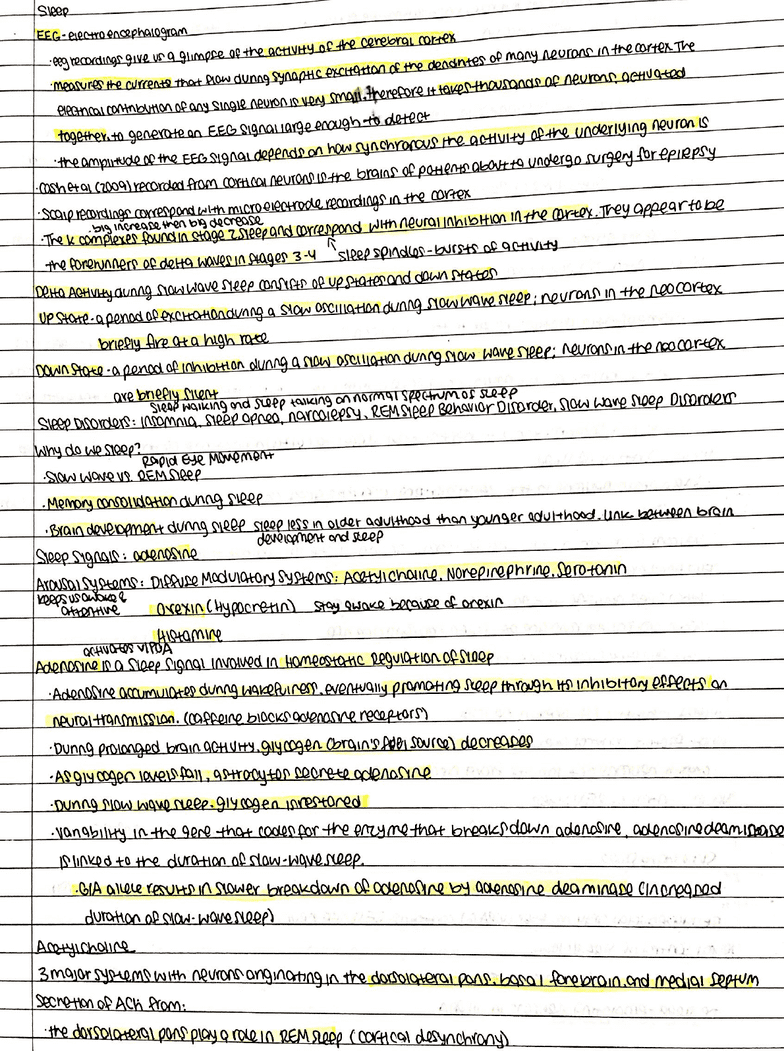 Sleep
EEG - electroencephalogram
· eeg recordings give us a glimpse of the activity of the cerebral cortex
· measures the currents that flow during synaptic excitation of the dendrites of many neurons in the cortex. The
electrical contribution of any single neuron is very small. Therefore it takes thousands of neurons, activated
together, to generate an EEG signal large enough to detect
· the amplitude of the EEG signal depends on how synchronous the activity of the underlying neuron is
· Cash et al (2009) recorded from cortical neurons is the brains of patients about to undergo surgery for epilepsy
· Scalp recordings correspond with micro electrode recordings in the cortex
· big increase then big decrease
· The K complexes found in stage 2 sleep and correspond with neural inhibition in the cortex. They appear to be
the forerunners of delta waves in stages 3-4 sleep spindles - bursts of activity
Delta Activity during slow wave sleep consists of up states and down states
Up State - a period of excitation during a slow oscillation during slow wave sleep; neurons in the neocortex
briefly fire at a high rate
Down State - a period of inhibition during a slow oscillation during slow wave sleep; neurons in the neocortex
are briefly silent
sleep walking and sleep talking on normal spectrum of sleep
Sleep Disorders: Insomnia, sleep apnea, narcolepsy, REM Sleep Behavior Disorder, Slow Wave Sleep Disorders
Why do we sleep?
Rapid Eye Movement
· Slow Wave vs. REM Sleep
· Memory consolidation during sleep
· Brain development during sleep sleep less in older adulthood than younger adulthood. Link between brain
development and sleep
Sleep Signals: adenosine
Arousal Systems: Diffuse Modulatory Systems: Acetylcholine, Norepinephrine, Serotonin
keeps us awake &
attentive Orexin (Hypocretin) stay awake because of orexin
Histamine
activates VLPOA
Adenosine is a Sleep Signal involved in Homeostatic Regulation of Sleep
· Adenosine accumulates during wakefulness, eventually promoting sleep through its inhibitory effects on
neural transmission. (caffeine blocks adenosine receptors)
· During prolonged brain activity, glycogen (brain's fuel source) decreases
· As glycogen levels fall, astrocytes secrete adenosine
· During slow wave sleep, glycogen is restored
· Variability in the gene that codes for the enzyme that breaks down adenosine, adenosine deaminase
is linked to the duration of slow-wave sleep.
· G/A allele results in slower breakdown of adenosine by adenosine deaminase (increased
duration of slow-wave sleep)
Acetylcholine
3 major systems with neurons originating in the dorsolateral pons, basal forebrain, and medial septum
Secretion of ACh from:
· the dorsolateral pons play a role in REM sleep (cortical desynchrony)